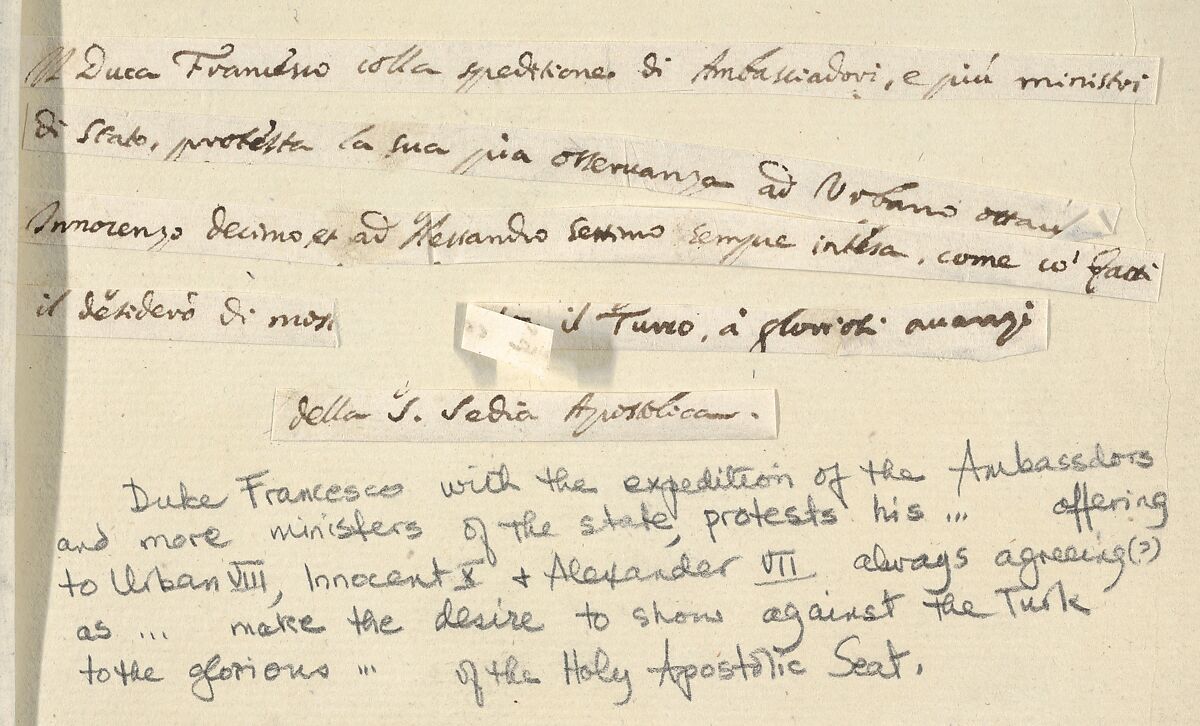 Il Duca Francesco colla speditione di Ambasciadori, e più ministri
di Stato, protesta la sua pia osservanza ad Urbano ottau
Innocenzo decimo, et ad Alessandro Settimo sempre intésa, come co' fatti
il desiderò di mos il Turco, à gloriosi auanzi
della S. Sedia Apostolica.
Duke Francesco with the expedition of the Ambassdors
and more ministers of the state, protests his ... offering
to Urban VIII, Innocent X + Alexander VII always agreeing(?)
as ... make the desire to show against the Turk
to the glorious ... of the Holy Apostolic Seat.